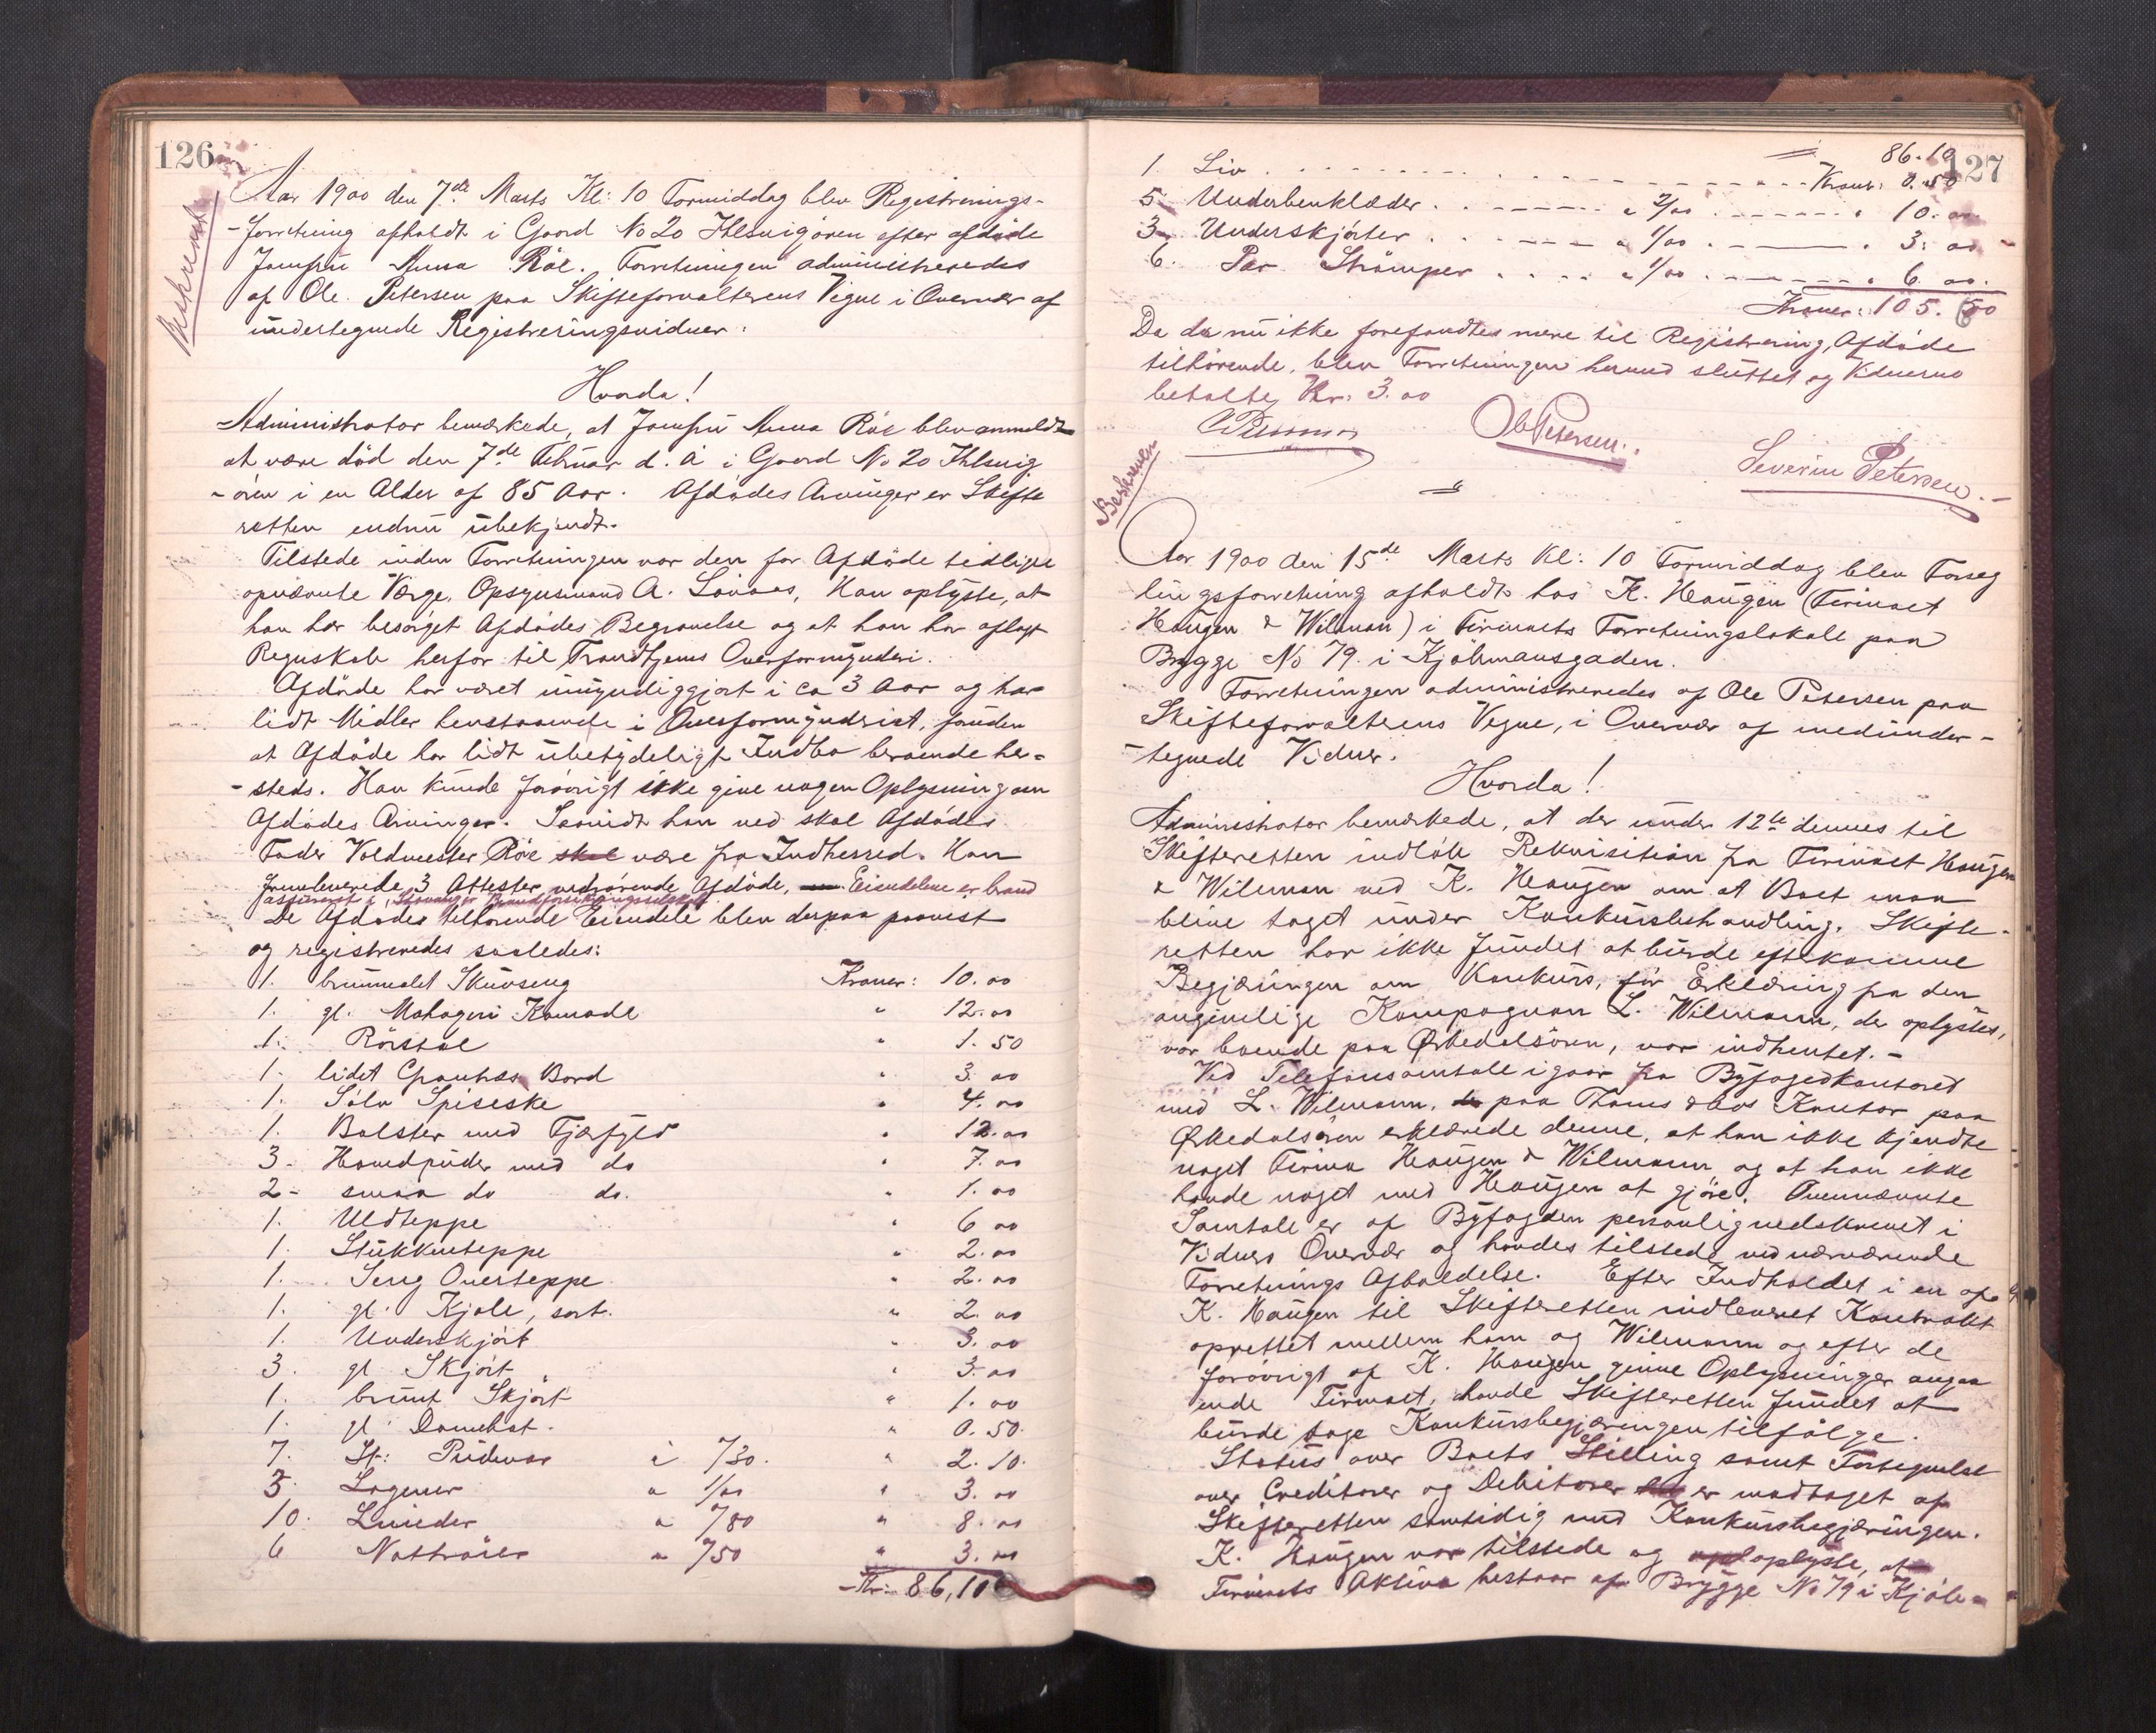 126
Beskrevet
Aar 1900 den 7de Marts Kl: 10 Formiddag blev Registrerings-
-forretning afholdt i Gaard No 20 Ihlsvigören efter afdöde
Jomfru Anna Röe. Forretningen administreredes
af Ole Petersen paa Skifteforvalterens Vegne i Overvær af
undertegnede Registreringsvidner:
Hvorda!
Administrator bemærkede, at Jomfru Anna Röe blev anmeldt
at være död den 7de Februar d. A i Gaard No 20 Ihlsvig
-ören i en Alder af 85 Aar. Afdödes Arvinger er Skifte
retten endnu ubekjendt.
Tilstede inden Forretningen var den for Afdöde tidligere
opnævnte Værge, Opsynsmand A. Lövaas, Han oplyste, at
han har besörget Afdödes Begravelse og at han har aflagt
Regnskab herfor til Trondhjems Overformynderi.
Afdöde har været umyndiggjort i ca 3 Aar og har
lidt Midler henstaaende i Overformynderiet, foruden
at Afdöde har lidt ubetydeligt Indbo beroende her-
-steds. Han kunde forövrigt ikke give nogen Oplysning om
Afdödes Arvinger. Saavidt han ved skal Afdödes
Fader Voldmester Röe skal være fra Indherred. Han
fremleverede 3 Attester vedrörende Afdöde, Eiendelene er brand
assureret i Stavanger Brandforsikringsselskab
De Afdöde tilhörende Eiendele blev derpaa paavist
og registreredes saaledes:
1. brunmalet Skuvseng Kroner: 10.00
1. gl. Mahogni Komode " 12.00
1. Rörstol " 1.50
1. lidet Bord " 3.00
1. Sölv Spiseske " 4.00
1. Bolster med Fjærfyld " 12.00
3- Hovedpuder med do " 7.00
2- smaa do do. " 1.00
1. Uldteppe " 6 00
1. Stukkenteppe " 2.00
1. Seng Overteppe " 2.00
1. gl. Kjole, sort. " 2.00
1. Underskjört " 3.00
3. gl Skjört " 3.00
1. brunt Skjört " 1.00
1. gl. Damehat. " 0.50
7. St: Pudevar à 7/30. " 2.10.
3. Lagener " 1/00 " 3.00
10. Linieder " 7/80 " 8.00
6 Nattröier " 7/50 " 3.00
Kr: 86,10
127
86.10
1. Liv Kroner: 0.50
5 Underbenklæder " 2/00 " 10.00
3- Underskjörter " 1/00 " 3.00
6. Par Strömper " 1/00 " 6 00.
Kroner: 105.60
Da der nu ikke forefandtes mere til Registrering, Afdöde
tilhörende, blev Forretningen hermed sluttet og Vidnerne
betalte Kr: 3.00
Ole Petersen.
Severin Petersen.
Beskreven
Aar 1900 den 15de Marts Kl: 10 Formiddag blev Forseg
lingsforretning afholdt hos K. Haugen (Firmaet
Haugen & Wilmann) i Firmaets Forretningslokale paa
Brygge No 79 i Kjöbmansgaden.
Forretningen administreredes af Ole Petersen paa
Skifteforvalterens Vegne, i Overvær af medunder-
-tegnede Vidner.
Hvorda!
Administrator bemærkede, at der under 12te dennes til
Skifteretten indlöb Rekvisition fra Firmaet Haugen
& Wilmann ved K. Haugen om at Boet maa
blive taget under Konkursbehandling. Skifte-
retten har ikke fundet at burde efterkomme
Begjæringen om Konkurs, för Erklæring fra den
angivelige Kompagnon L. Wilmann, der oplystes,
var boende paa Örkedalsören, var indhentet. -
Ved Telefonsamtale igaar fra Byfogedkontoret
med L. Wilmann, paa Thams & Cos Kontor paa
Örkedalsören erklærede denne, at han ikke kjendte
noget Firma Haugen & Wilmann og at han ikke
havde noget med Haugen at gjöre. Ovennævnte
Samtale er af Byfogden personlig nedskrevet i
Vidners Overvær og havdes tilstede ved nærværende
Forretnings Afholdelse. Efter Indholdet i en af
K. Haugen til Skifteretten indleveret Kontrakt
oprettet mellem ham og Wilmann og efter de
forövrigt af K. Haugen givne Oplysninger angaa
ende Firmaet, havde Skifteretten fundet at
burde tage Konkursbegjæringen tilfölge.
Status over Boets Stilling samt Fortegnelse
over Creditorer og Debitorer er modtaget af
Skifteretten samtidig med Konkursbegjæringen.
K. Haugen var tilstede og oplyste, at
Firmaets Aktiva bestaar af Brygge No 79 i Kjöb-